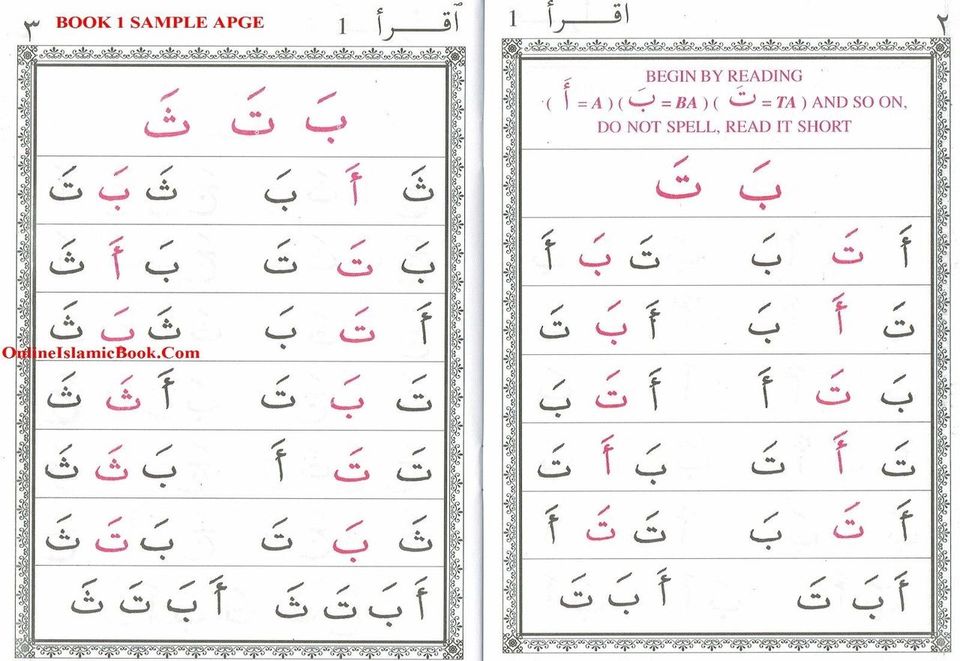 ٢ اقــرأ 1
BEGIN BY READING
( أَ = A ) ( بَ = BA ) ( تَ = TA ) AND SO ON,
DO NOT SPELL, READ IT SHORT
بَ تَ
أَ تَ بَ تَ بَ أَ
تَ أَ بَ أَ بَ تَ
بَ تَ أَ أَ تَ بَ
تَ أَ تَ بَ أَ تَ
أَ تَ بَ تَ تَ أَ
أَ بَ تَ أَ بَ تَ
٣ BOOK 1 SAMPLE APGE 1 اقــرأ
بَ تَ ثَ
ثَ أَ بَ ثَ بَ تَ
بَ تَ تَ بَ أَ ثَ
أَ تَ بَ ثَ بَ ثَ
OnlineIslamicBook.Com
تَ بَ تَ أَ ثَ ثَ
تَ تَ أَ بَ ثَ ثَ
ثَ بَ تَ بَ تَ ثَ
أَ بَ تَ ثَ أَ بَ تَ ثَ